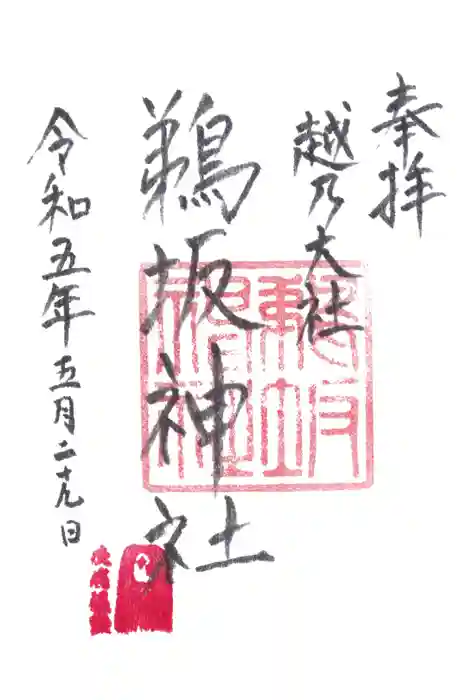 奉拝
越乃大社
鵜坂神社
令和五年五月二十九日
鵜坂神社